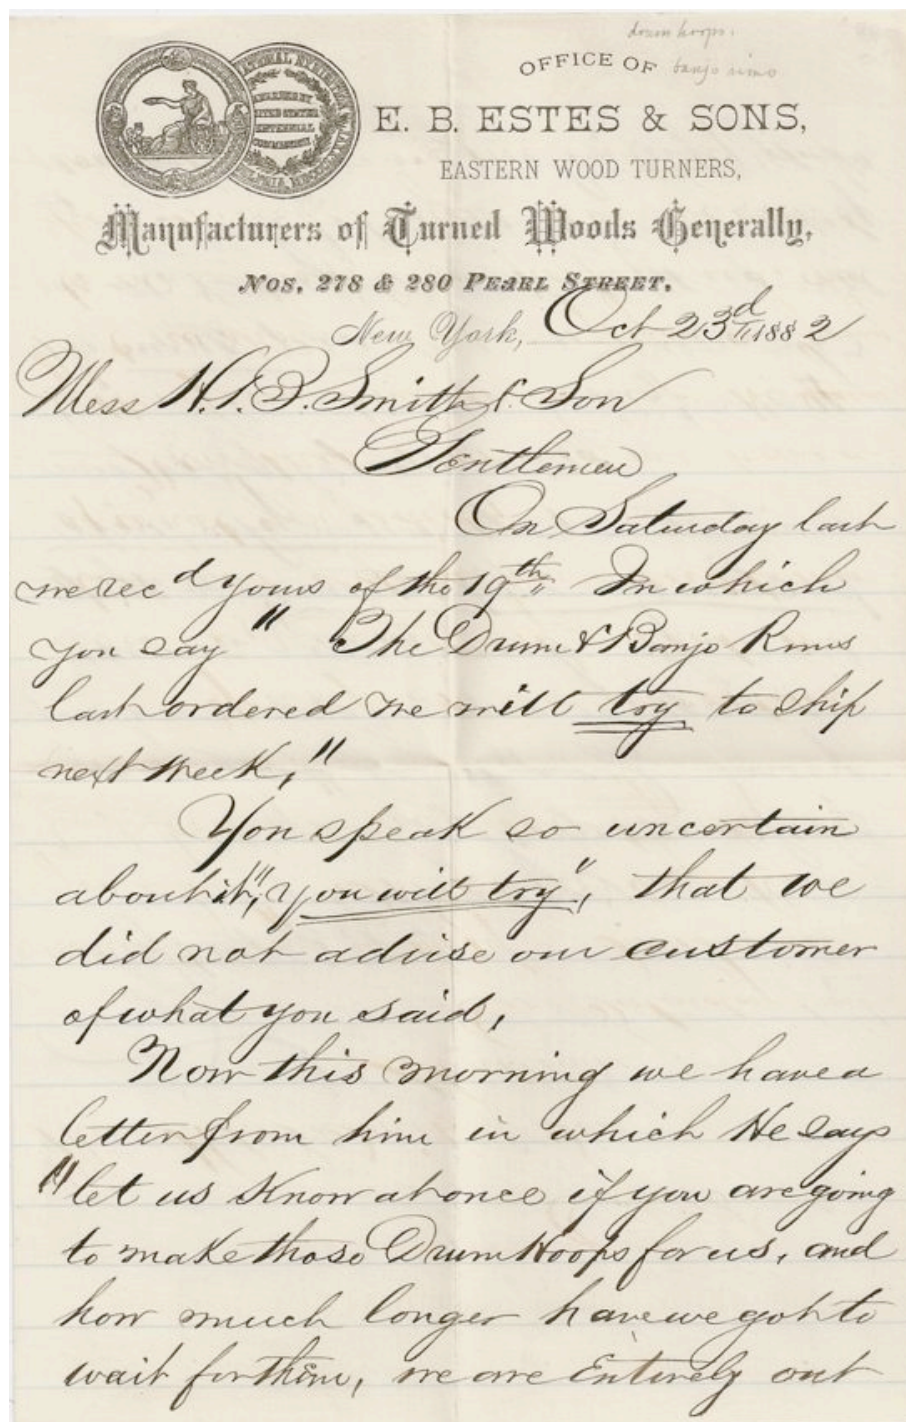 drum hoops.
OFFICE OF banjo rims
E. B. ESTES & SONS,
EASTERN WOOD TURNERS,
Manufacturers of Turned Woods Generally,
Nos. 278 & 280 Pearl Street.
New York, Oct 23d 1882
Mess H. B. Smith & Son
Gentlemen
On Saturday last
we rec'd yours of the 19th In which
you say " The Drum & Banjo Rims
last ordered we will try to ship
next week,"
You speak so uncertain
about it, "you will try", that we
did not advise our customer
of what you said,
Now this morning we have a
letter from him in which He says
"let us Know at once if you are going
to make those Drum Hoops for us, and
how much longer have we got to
wait for them, we are Entirely out